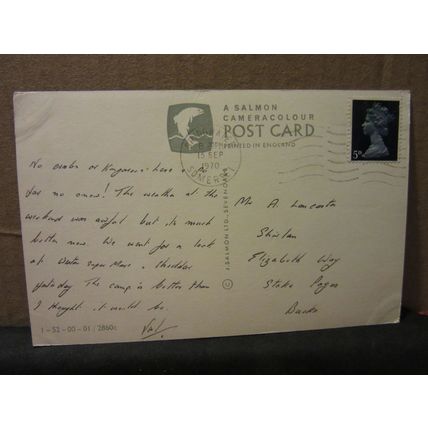 A SALMON
CAMERACOLOUR
POST CARD
PRINTED IN ENGLAND
15 SEP
1970
SOMERSET
5D
J. SALMON LTD., SEVENOAKS
No or have so
far no cows! The weather at the
weekend was awful but its much
better now. We went for a look
at Weston Super Mare & Cheddar
yesterday The camp is better than
I thought it would be.
Val
Mr A. Lancaster
Elizabeth Way
Stoke Poges
Bucks
1-52-00-01 / 2860c